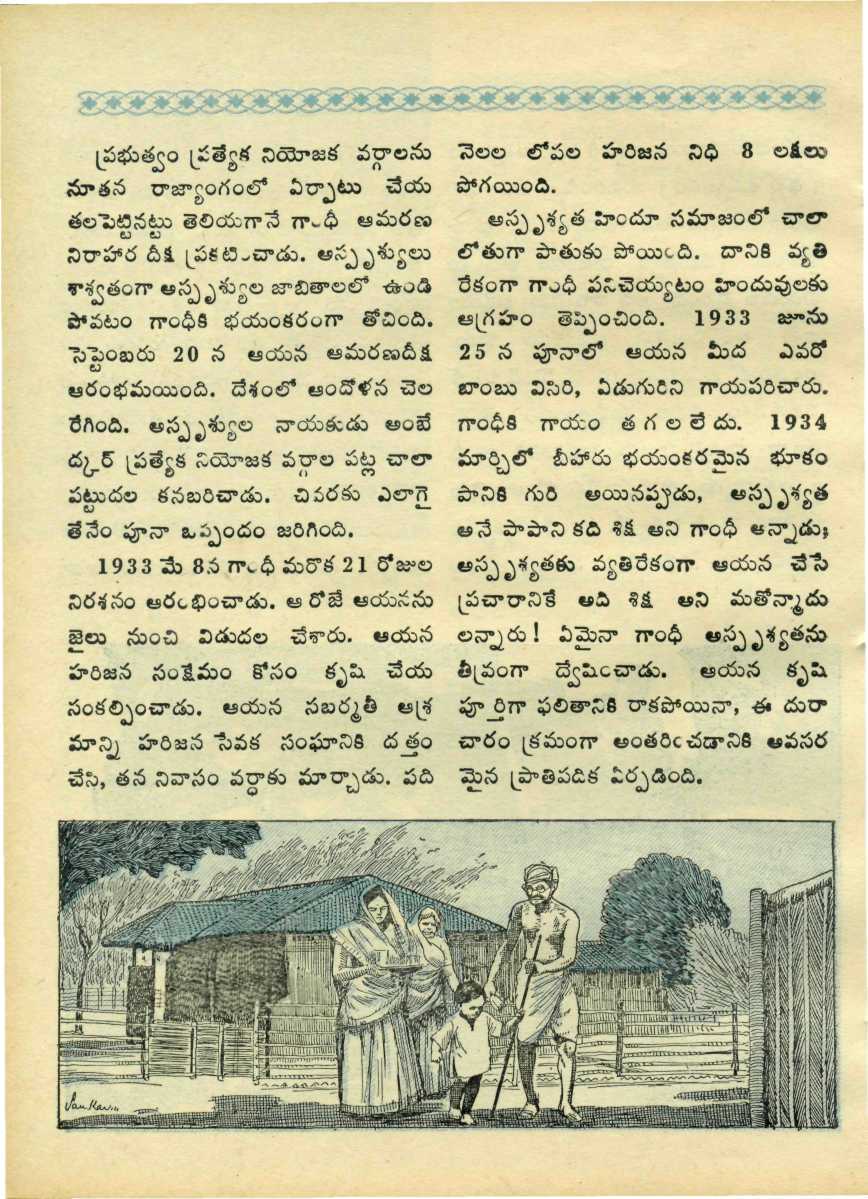 ప్రభుత్వం ప్రత్యేక నియోజక వర్గాలను
నూతన రాజ్యాంగంలో ఏర్పాటు చేయ
తలపెట్టినట్టు తెలియగానే గాంధీ ఆమరణ
నిరాహార దీక్ష ప్రకటించాడు. అస్పృశ్యులు
శాశ్వతంగా అస్పృశ్యుల జాబితాలలో ఉండి
పోవటం గాంధీకి భయంకరంగా తోచింది.
సెప్టెంబరు 20 న ఆయన ఆమరణదీక్ష
ఆరంభమయింది. దేశంలో ఆందోళన చెల
రేగింది. అస్పృశ్యుల నాయకుడు అంబే
ద్కర్ ప్రత్యేక నియోజక వర్గాల పట్ల చాలా
పట్టుదల కనబరిచాడు. చివరకు ఎలాగై
తేనేం పూనా ఒప్పందం జరిగింది.
1933 మే 8న గాంధీ మరొక 21 రోజుల
నిరశనం ఆరంభించాడు. ఆ రోజే ఆయనను
జైలు నుంచి విడుదల చేశారు. ఆయన
హరిజన సంక్షేమం కోసం కృషి చేయ
సంకల్పించాడు. ఆయన సబర్మతీ ఆశ్ర
మాన్ని హరిజన సేవక సంఘానికి దత్తం
చేసి, తన నివాసం వర్ధాకు మార్చాడు. పది
నెలల లోపల హరిజన నిధి 8 లక్షలు
పోగయింది.
అస్పృశ్యత హిందూ సమాజంలో చాలా
లోతుగా పాతుకు పోయింది. దానికి వ్యతి
రేకంగా గాంధీ పనిచెయ్యటం హిందువులకు
ఆగ్రహం తెప్పించింది. 1933 జూను
25 న పూనాలో ఆయన మీద ఎవరో
బాంబు విసిరి, ఏడుగురిని గాయపరిచారు.
గాంధీకి గాయం తగలలేదు. 1934
మార్చిలో బీహారు భయంకరమైన భూకం
పానికి గురి అయినప్పుడు, అస్పృశ్యత
అనే పాపాని కది శిక్ష అని గాంధీ అన్నాడు;
అస్పృశ్యతకు వ్యతిరేకంగా ఆయన చేసే
ప్రచారానికే అది శిక్ష అని మతోన్మాదు
లన్నారు! ఏమైనా గాంధీ అస్పృశ్యతను
తీవ్రంగా ద్వేషించాడు. ఆయన కృషి
పూర్తిగా ఫలితానికి రాకపోయినా, ఈ దురా
చారం క్రమంగా అంతరించడానికి అవసర
మైన ప్రాతిపదిక ఏర్పడింది.